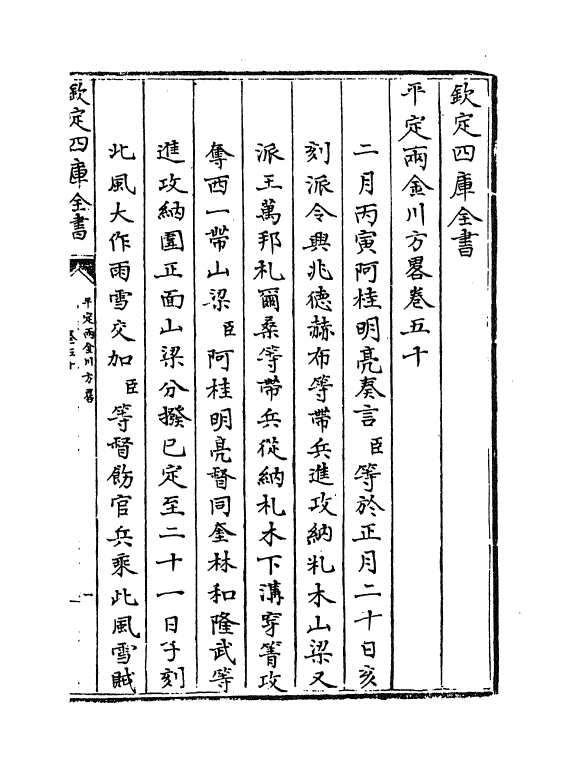 欽定四庫全書
平定兩金川方畧卷五十
二月丙寅阿桂明亮奏言臣等於正月二十日亥
刻派令興兆德赫布等帶兵進攻納札木山梁又
派王萬邦札爾桑等帶兵從納札木下溝穿箐攻
奪西一帶山梁臣阿桂明亮督同奎林和隆武等
進攻納圍正面山梁分撥已定至二十一日子刻
北風大作雨雪交加臣等督飭官兵乘此風雪賊
欽定四庫全書
平定兩金川方畧
卷五十
一